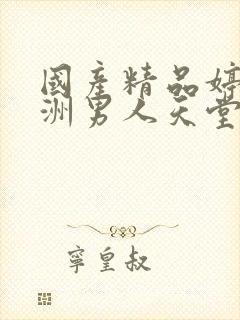 國產精品婷
洲男人天堂
寧皇叔